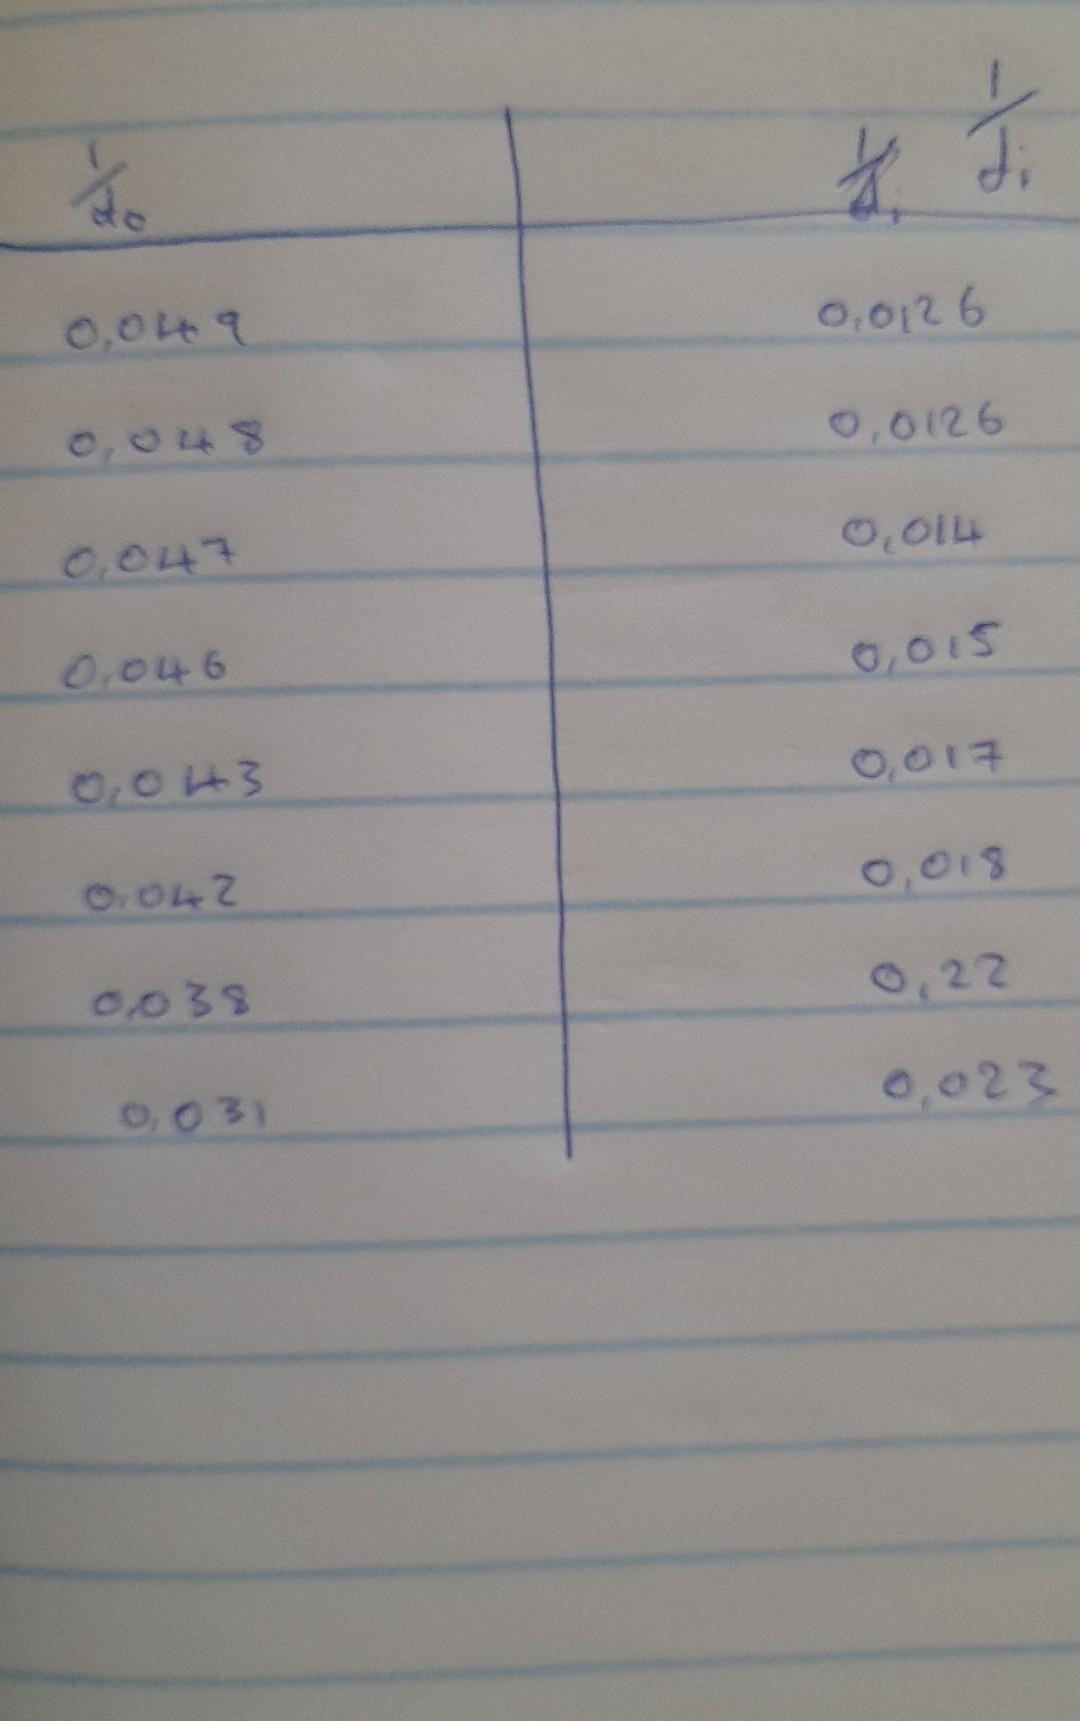 1/do 1/di
0,049 0,0126
0,048 0,0126
0,047 0,014
0,046 0,015
0,043 0,017
0.042 0,018
0,038 0,22
0,031 0,023